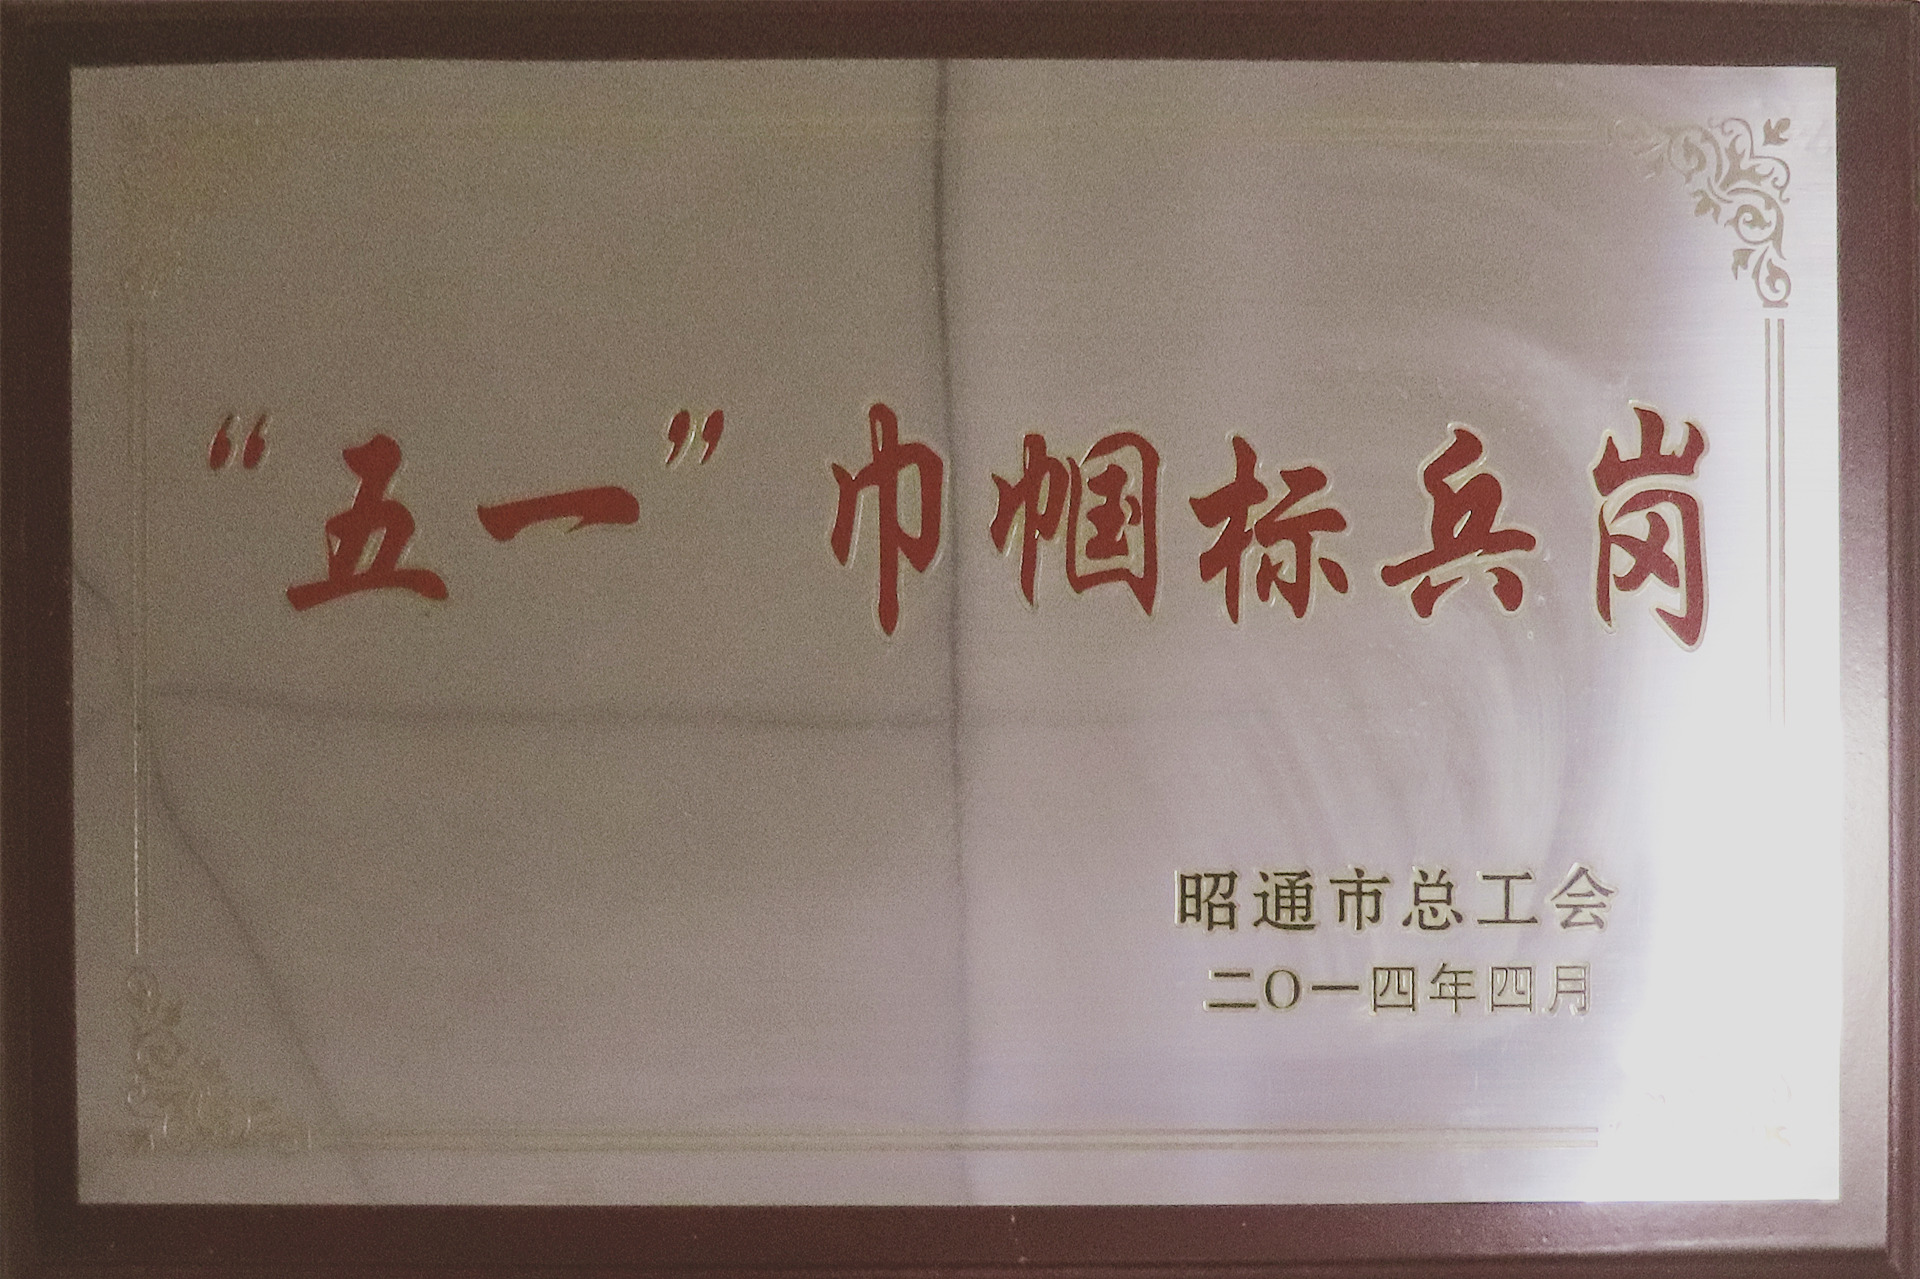 “五一”巾帼标兵岗
昭通市总工会
二〇一四年四月